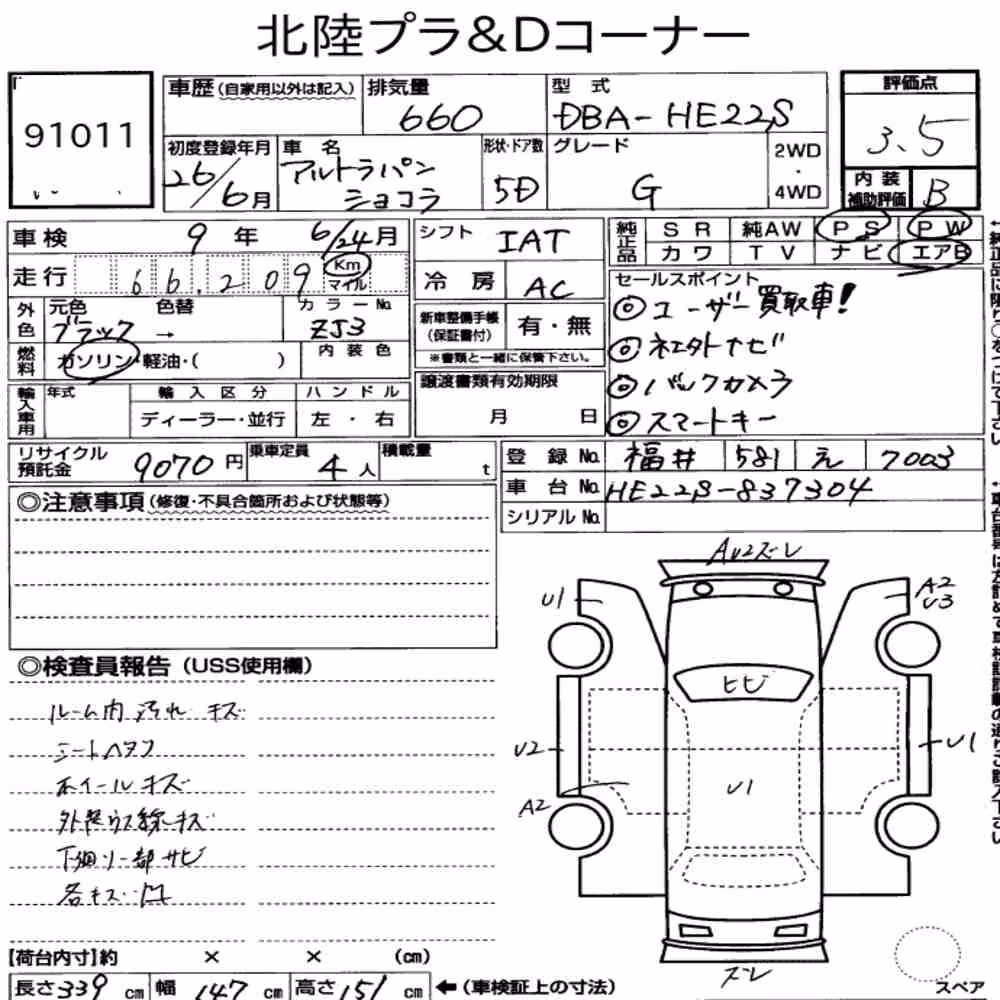 北陸プラ&Dコーナー
91011
車歴(自家用以外は記入)
排気量
660
型 式
DBA-HE22S
評価点
3.5
内装
補助評価
B
初度登録年月
26/6月
車 名
アルトラパン
ショコラ
形状・ドア数
5D
グレード
G
2WD
・
4WD
車検 9年 6/24月
走行 66.209 Km
マイル
外色
元色
ブラック
色替
→
カラーNo.
ZJ3
燃料
ガソリン・軽油・( )
内装色
輸入車用
年式
輸入区分
ディーラー・並行
ハンドル
左・右
シフト
IAT
冷房
AC
新車整備手帳
(保証書付)
有・無
※書類と一緒に保管下さい。
譲渡書類有効期限
月 日
純正品
SR 純AW PS PW
カワ TV ナビ エアB
セールスポイント
◎ユーザー買取車!
◎ネエタトナビ
◎バックカメラ
◎スマートキー
リサイクル
預託金
9070円
乗車定員
4人
積載量
t
登録No. 福井 581 え 7003
車台No. HE22S-837304
シリアルNo.
◎注意事項(修復・不具合箇所および状態等)
◎検査員報告(USS使用欄)
ルーム内汚れ キズ
シートヘタリ
ホイールキズ
外装ウス線キズ
下廻り一部サビ
各キズ凹
AU2ズレ
U1
A2
U3
ヒビ
U2
U1
U1
A2
ズレ
スペア
【荷台内寸】約 × × (cm)
長さ339cm 幅147cm 高さ151cm ←(車検証上の寸法)